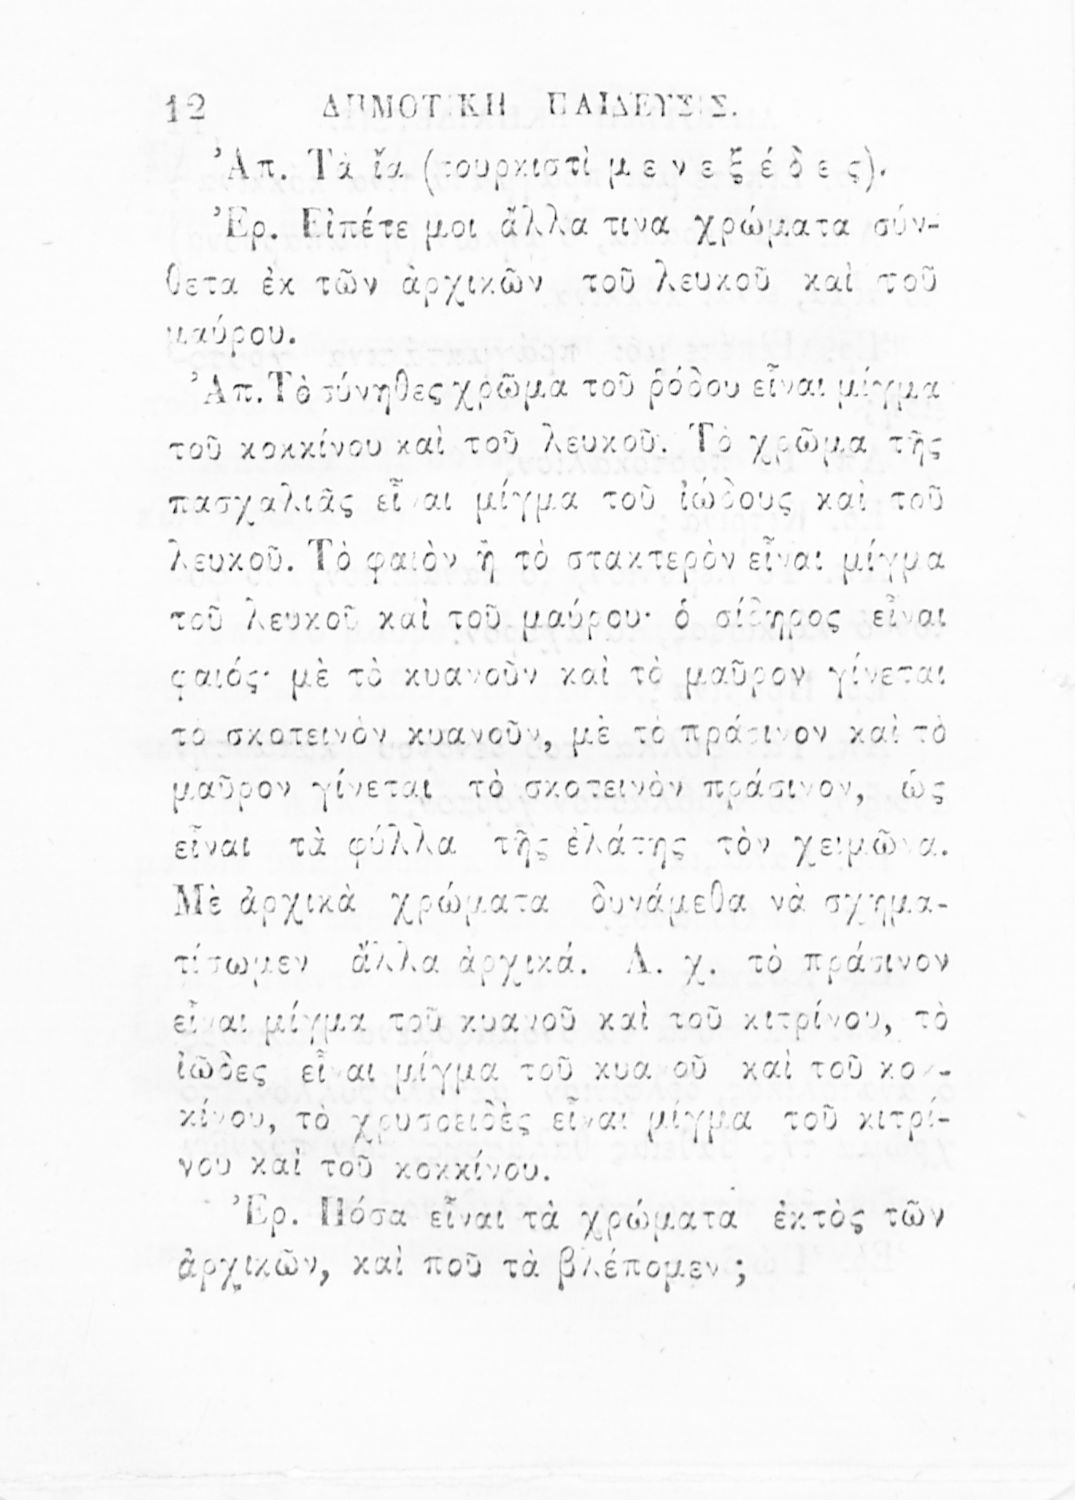 12 ΔΗΜΟΤΙΚΗ ΠΑΙΔΕΥΣΙΣ.
Ἀπ. Τὰ ἴα (τουρκιστὶ μενεξέδες).
Ἐρ. Εἰπέτε μοι ἄλλα τινα χρώματα σύν-
θετα ἐκ τῶν ἀρχικῶν τοῦ λευκοῦ καὶ τοῦ
μαύρου.
Ἀπ. Τὸ σύνηθες χρῶμα τοῦ ῥόδου εἶναι μίγμα
τοῦ κοκκίνου καὶ τοῦ λευκοῦ. Τὸ χρῶμα τῆς
πασχαλιᾶς εἶναι μίγμα τοῦ ἰώδους καὶ τοῦ
λευκοῦ. Τὸ φαιὸν ἢ τὸ στακτερὸν εἶναι μίγμα
τοῦ λευκοῦ καὶ τοῦ μαύρου· ὁ σίδηρος εἶναι
φαιός· μὲ τὸ κυανοῦν καὶ τὸ μαῦρον γίνεται
τὸ σκοτεινὸν κυανοῦν, μὲ τὸ πράσινον καὶ τὸ
μαῦρον γίνεται τὸ σκοτεινὸν πράσινον, ὡς
εἶναι τὰ φύλλα τῆς ἐλάτης τὸν χειμῶνα.
Μὲ ἀρχικὰ χρώματα δυνάμεθα νὰ σχημα-
τίσωμεν ἄλλα ἀρχικά. Λ. χ. τὸ πράσινον
εἶναι μίγμα τοῦ κυανοῦ καὶ τοῦ κιτρίνου, τὸ
ἰῶδες εἶναι μίγμα τοῦ κυανοῦ καὶ τοῦ κοκ-
κίνου, τὸ χρυσοειδὲς εἶναι μίγμα τοῦ κιτρί-
νου καὶ τοῦ κοκκίνου.
Ἐρ. Πόσα εἶναι τὰ χρώματα ἐκτὸς τῶν
ἀρχικῶν, καὶ ποῦ τὰ βλέπομεν;